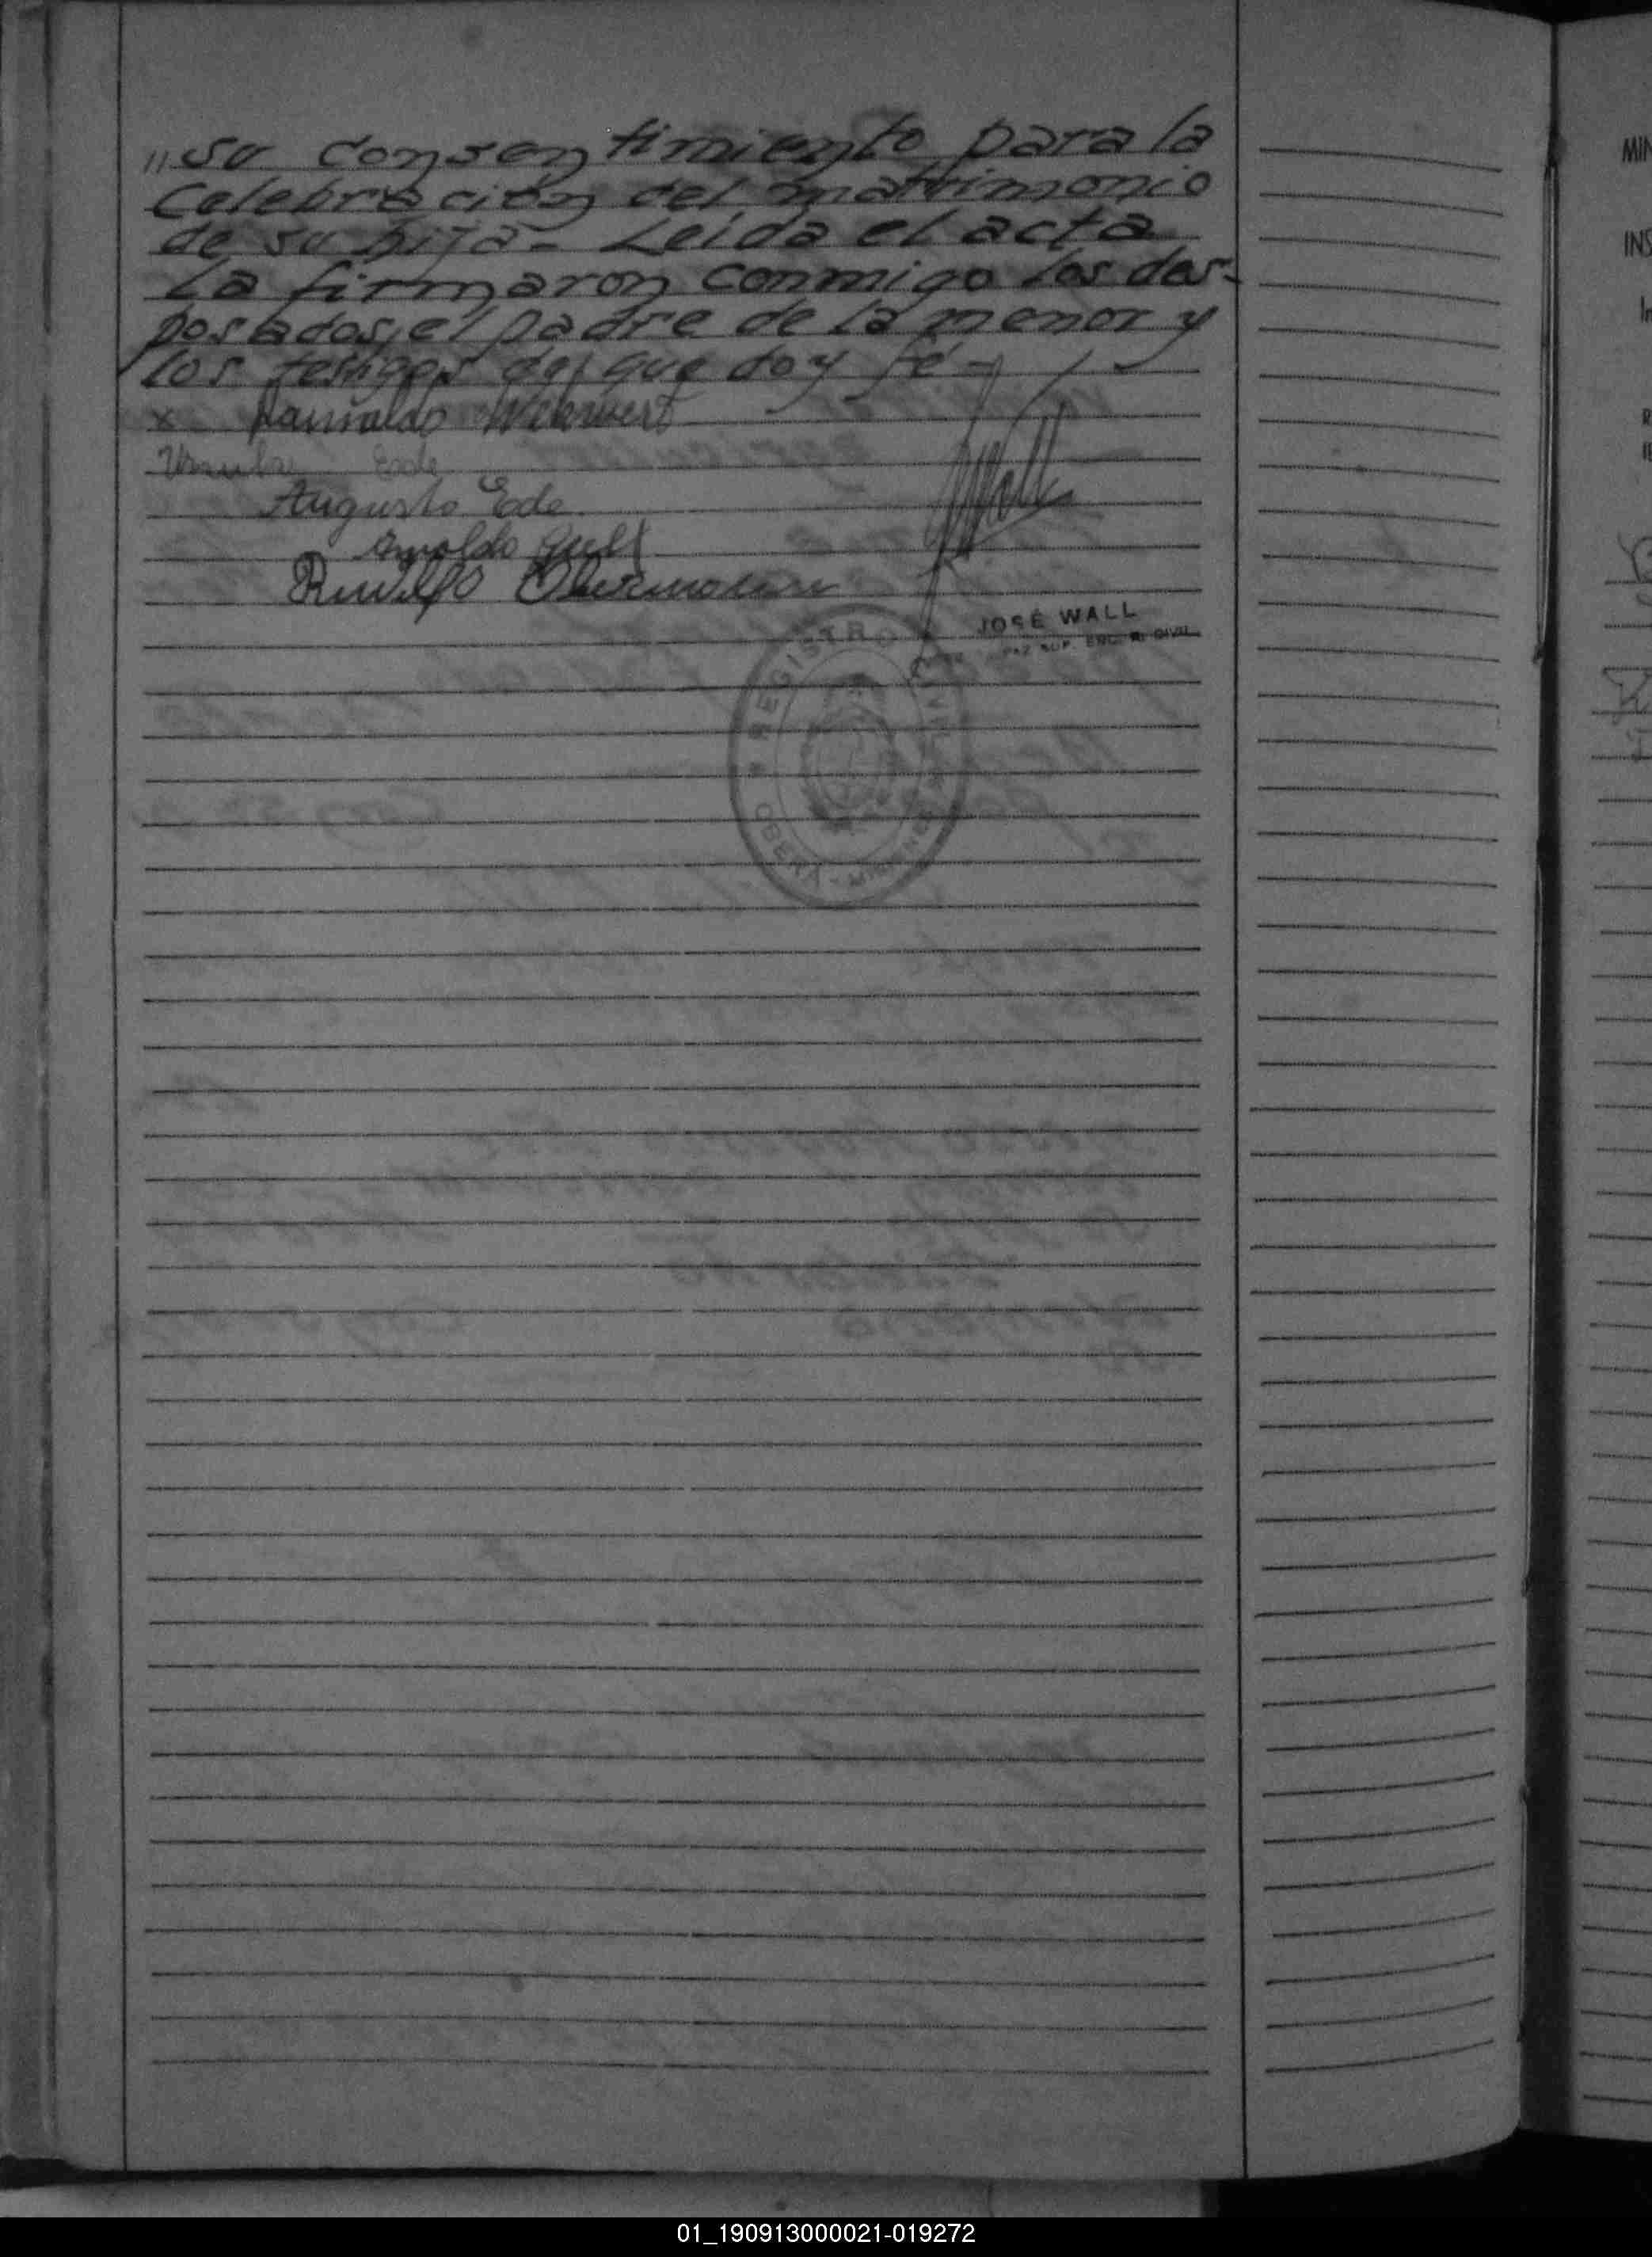 "su consentimiento para la
celebración del matrimonio
de su hija - Leida el acta
La firmaron conmigo los des-
posados, el padre de la menor y
los testigos de que doy fé -
x
Ede
Augusto Ede
Arnoldo
Rudolfo
JOSÉ WALL
PAZ SUP. ENC. R. CIVIL
REGISTRO CIVIL
OBERÁ - MISIONES
MIN
INS
01_190913000021-019272